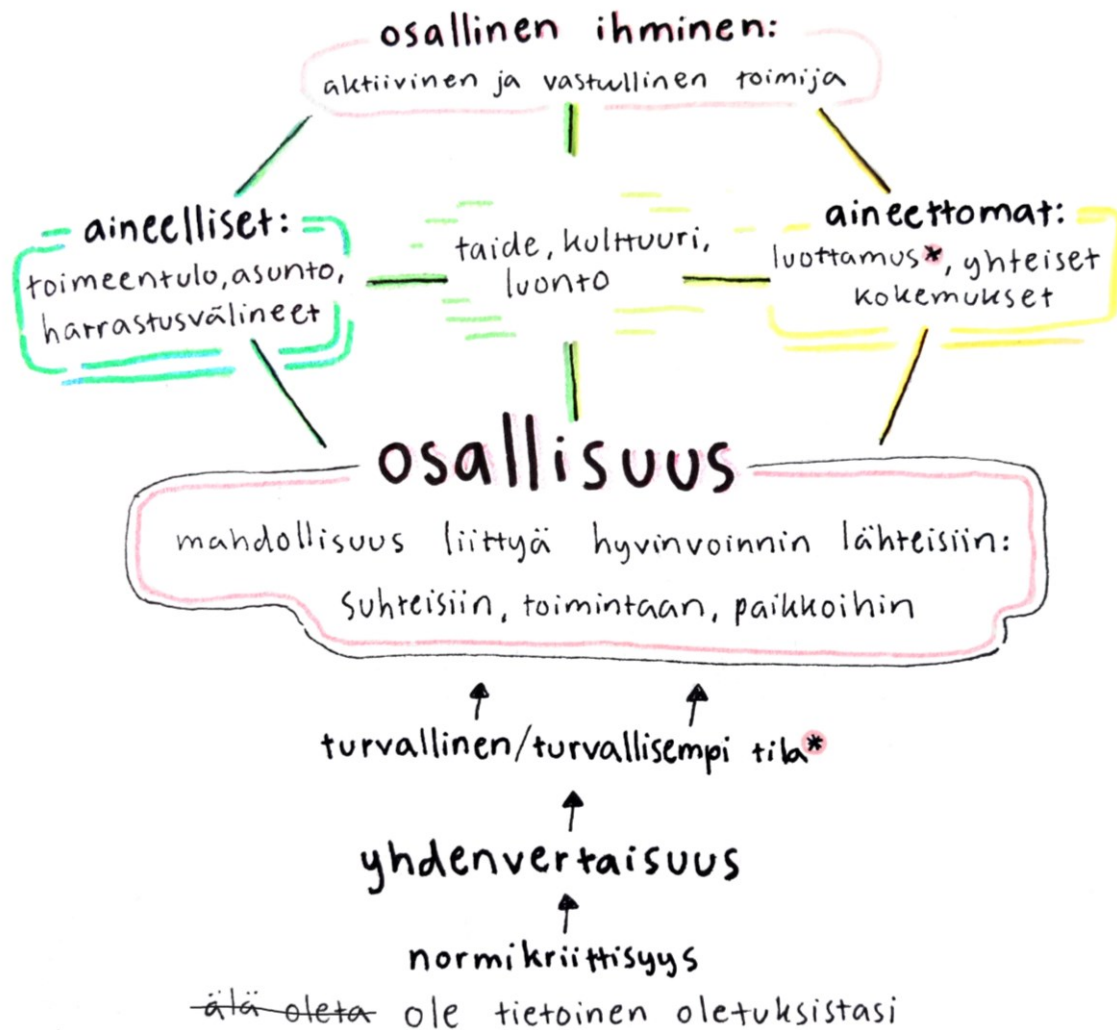 osallinen ihminen:
aktiivinen ja vastuullinen toimija
aineelliset:
toimeentulo, asunto,
harrastusvälineet
taide, kulttuuri,
luonto
aineettomat:
luottamus*, yhteiset
kokemukset
osallisuus
mahdollisuus liittyä hyvinvoinnin lähteisiin:
suhteisiin, toimintaan, paikkoihin
turvallinen/turvallisempi tila*
yhdenvertaisuus
normikriittisyys
älä oleta ole tietoinen oletuksistasi